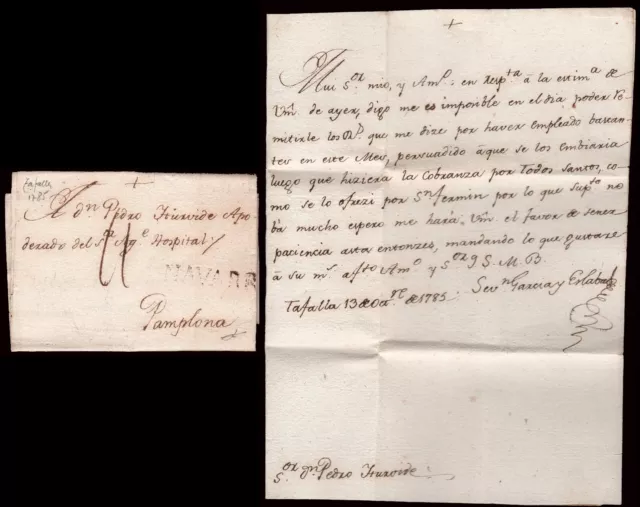 Tafalla
1785
+
A dn Pedro Yturvide Apo-
derado del Sto Hospital
NAVARR
Pamplona
+
Mui Sor mio, y Amo: en respta â la estima de
Vm. de ayer, digo me es imposible en el dia poder re-
mitirle los Rs. que me dize por haver empleado bastan-
tes en este Mes, persuadido âque se los embiaria
luego que hiziera la Cobranza por Todos Santos, co-
mo se lo ofrezi por Sn Fermin por lo que supto no
mucho espero me hará Vm. el favor de tener
paciencia asta entonzes, mandando lo que gustare
â su ms. afto Amo y Sor q S. M. B.
Tafalla 13 de Octre de 1785.
Garcia y Eslaba
Sor Dn Pedro Yturvide